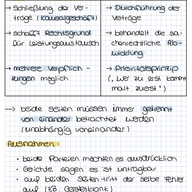 → Schließung der Ver-
träge (Kausalgeschäft)
→ schafft Rechtsgrund
für Leistungsaustausch
→ mehrere Verpflich-
tungen möglich
→ Durchführung der
Verträge
→ behandelt die sa-
chenrechtliche Ab-
wicklung
→ Prioritätsprinzip
(„wer zu erst kommt
malt zuerst“)
→ beide Seiten müssen immer getrennt
von einander betrachtet werden
(Unabhängig voneinander)
Ausnahmen:
- beide Parteien möchten es ausdrücklich
- Gerichte sagen es ist untragbar
- auf beiden Seiten tritt der selbe Fehler
auf (z.B. Geisteskrank)